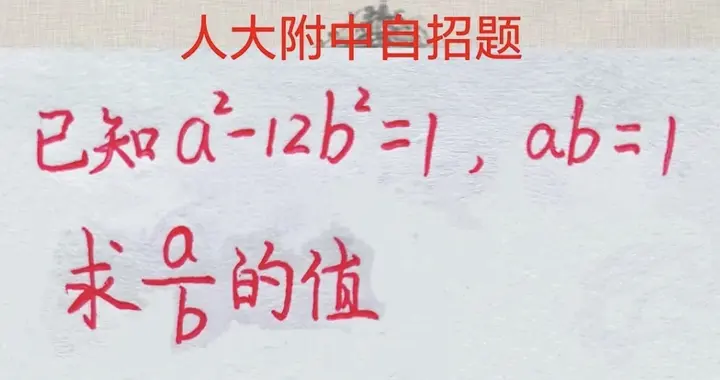 人大附中自招题
已知a²-12b²=1, ab=1
求a/b的值